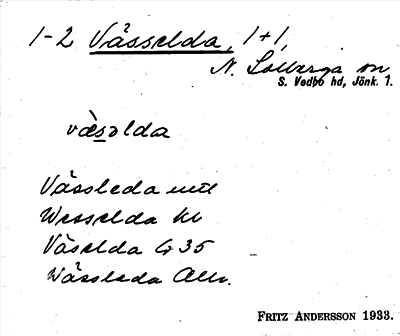 1-2 Vässelda, 1+1,
N. Solberga sn
S. Vedbo hd, Jönk. l.
väsəlda
Vässleda
Wesselda
Väselda G 35
Wässleda Allm.
FRITZ ANDERSSON 1933.